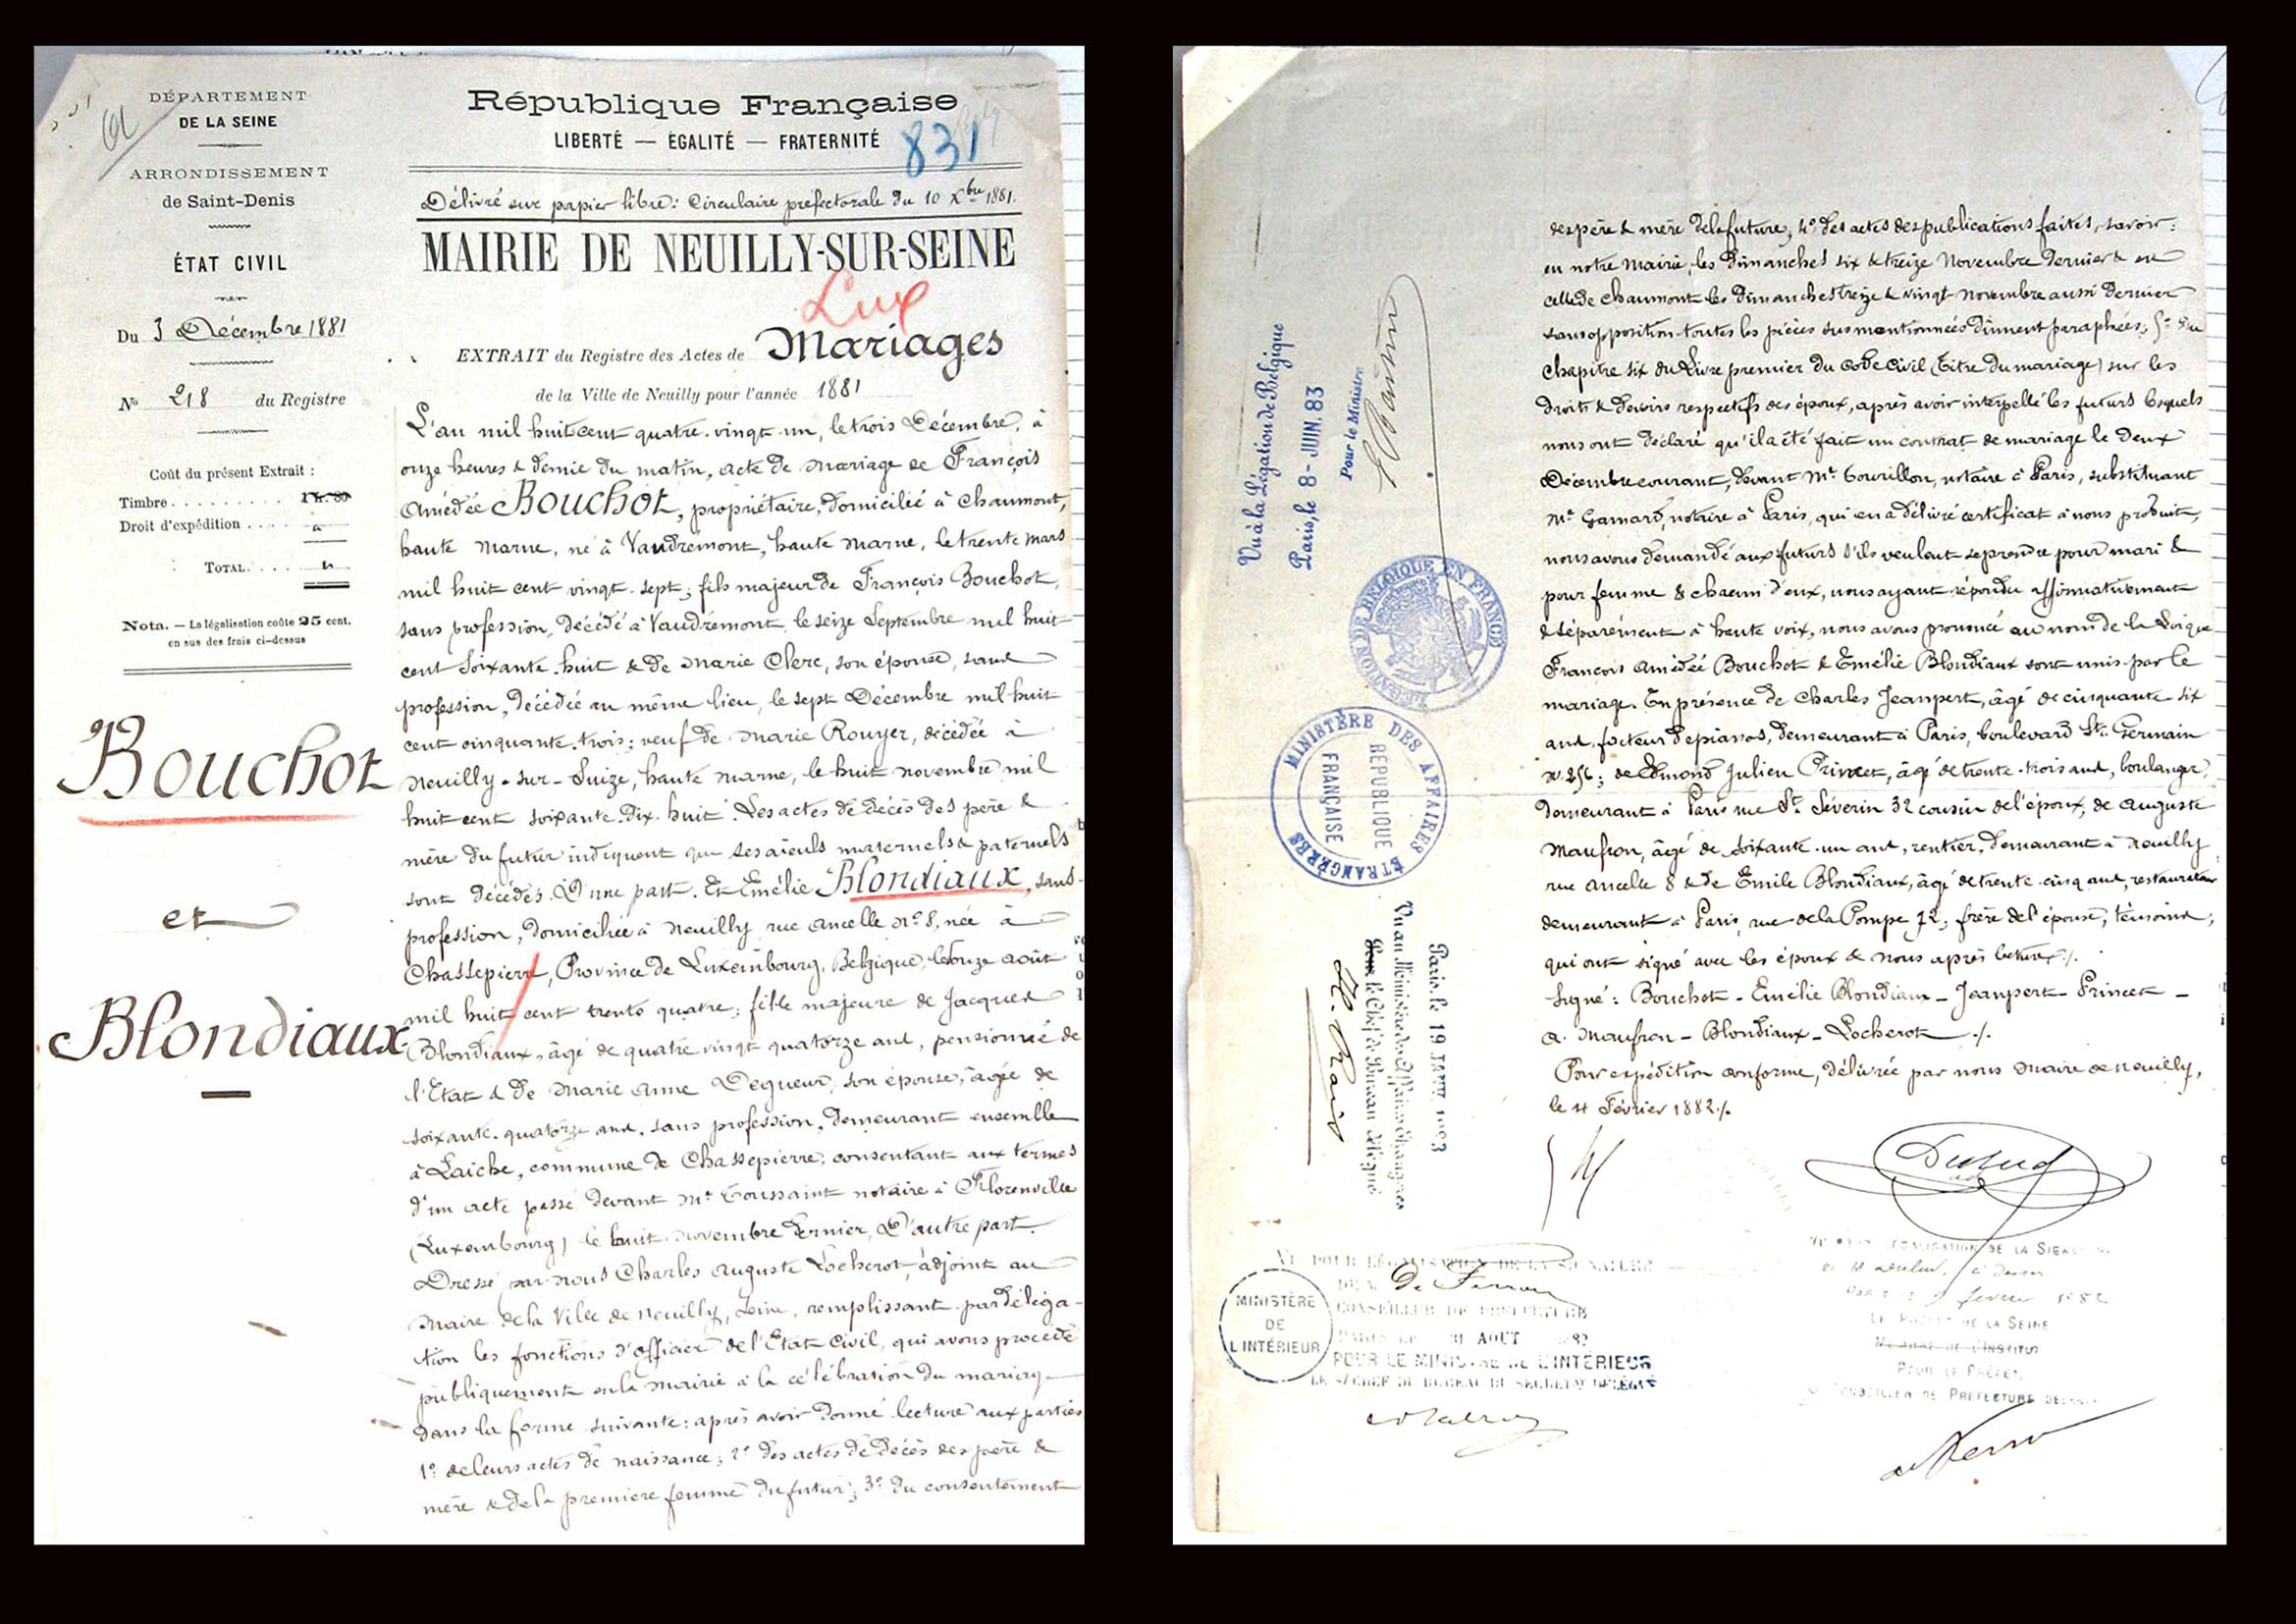 DÉPARTEMENT
DE LA SEINE
ARRONDISSEMENT
de Saint-Denis
ÉTAT CIVIL
Du 3 Décembre 1881
No 218 du Registre
Coût du présent Extrait :
Timbre . . . . . . . . . 1 fr. 80
Droit d'expédition . . . .
TOTAL . . . .
Nota. — La légalisation coûte 25 cent.
en sus des frais ci-dessus
Bouchot
et
Blondiaux
République Française
LIBERTÉ — ÉGALITÉ — FRATERNITÉ
831
Délivré sur papier libre: Circulaire préfectorale du 10 Xbre 1881.
MAIRIE DE NEUILLY-SUR-SEINE
Lux
EXTRAIT du Registre des Actes de Mariages
de la Ville de Neuilly pour l'année 1881
L'an mil huit cent quatre-vingt-un, le trois Décembre, à
onze heures & demie du matin, acte de mariage de François
Amédée Bouchot, propriétaire, domicilié à Chaumont,
haute Marne, né à Vaudrémont, haute Marne, le trente mars
mil huit cent vingt-sept; fils majeur de François Bouchot,
sans profession, décédé à Vaudrémont le seize Septembre mil huit
cent soixante-huit & de Marie Clerc, son épouse, sans
profession, décédée au même lieu, le sept Décembre mil huit
cent cinquante-trois; veuf de Marie Rouyer, décédée à
Neuilly-sur-Suize, haute Marne, le huit novembre mil
huit cent soixante-dix-huit. Les actes de décès des père &
mère du futur indiquent que ses aïeuls maternels & paternels
sont décédés. D'une part. Et Emélie Blondiaux, sans
profession, domiciliée à Neuilly rue Ancelle No 8, née à
Chassepierre, Province de Luxembourg, Belgique, le onze août
mil huit cent trente quatre; fille majeure de Jacques
Blondiaux, âgé de quatre vingt quatorze ans, pensionné de
l'Etat & de Marie Anne Dequeur, son épouse, âgée de
soixante-quatorze ans, sans profession, demeurant ensemble
à Laiche, commune de Chassepierre; consentant aux termes
d'un acte passé devant Me Toussaint notaire à Florenville
(Luxembourg) le huit novembre dernier, D'autre part.
Dressé par nous Charles Auguste Locherot, adjoint au
Maire de la Ville de Neuilly, Seine, remplissant par déléga-
tion les fonctions d'officier de l'Etat civil, qui avons procédé
publiquement en la Mairie à la célébration du mariage
dans la forme suivante: après avoir donné lecture aux parties
1o de leurs actes de naissance; 2o des actes de décès des père &
mère & de la première femme du futur; 3o du consentement
des père & mère de la future, 4o des actes des publications faites, savoir:
en notre Mairie, les Dimanches six & treize Novembre dernier & en
celle de Chaumont les Dimanches treize & vingt novembre aussi dernier
sans opposition toutes les pièces susmentionnées dûment paraphées; 5o du
chapitre six du Livre premier du Code Civil (Titre du mariage) sur les
droits & devoirs respectifs des époux, après avoir interpellé les futurs lesquels
nous ont déclaré qu'il a été fait un contrat de mariage le deux
Décembre courant, devant Me Tourillon, notaire à Paris, substituant
Me Gamard, notaire à Paris, qui en a délivré certificat à nous produit,
nous avons demandé aux futurs s'ils veulent se prendre pour mari &
pour femme & chacun d'eux, nous ayant répondu affirmativement
& séparément à haute voix, nous avons prononcé au nom de la Loi que
François Amédée Bouchot & Emélie Blondiaux sont unis par le
mariage. En présence de Charles Jeanpert, âgé de cinquante-six
ans, facteur de pianos, demeurant à Paris, boulevard St. Germain
No 256; de Edmond Julien Princet, âgé de trente-trois ans, boulanger,
demeurant à Paris rue St. Séverin 32 cousin de l'époux, de Auguste
Maufron, âgé de soixante-un ans, rentier, demeurant à Neuilly
rue Ancelle 8 & de Emile Blondiaux, âgé de trente-cinq ans, restaurateur
demeurant à Paris, rue de la Pompe 12; frère de l'épouse, témoins;
qui ont signé avec les époux & nous après lecture./.
Signé: Bouchot - Emélie Blondiaux - Jeanpert - Princet -
A. Maufron - Blondiaux - Locherot ./.
Pour expédition conforme, délivrée par nous Maire de Neuilly,
le 4 Février 1882./.
Vu à la Légation de Belgique
Paris, le 8 - JUIN. 83
Pour le Ministre
LÉGATION DE BELGIQUE EN FRANCE
MINISTÈRE DES AFFAIRES ETRANGÈRES
RÉPUBLIQUE FRANÇAISE
Paris, le 19 JANV. 1883
Vu au Ministère des Affaires Etrangères
Pour le Chef de Bureau délégué
VU POUR LÉGALISATION DE LA SIGNATURE
DE M. de Ferron
CONSEILLER DE PRÉFECTURE
PARIS LE 31 AOUT 82
POUR LE MINISTRE DE L'INTÉRIEUR
LE S/CHEF DU BUREAU DU SECRÉTAT DÉLÉGUÉ
MINISTÈRE
DE
L'INTÉRIEUR
LÉGALISATION DE LA SIGNATURE
fevrier 1882
LE PRÉFET DE LA SEINE
MEMBRE DE L'INSTITUT
POUR LE PRÉFET,
LE CONSEILLER DE PRÉFECTURE DÉLÉGUÉ